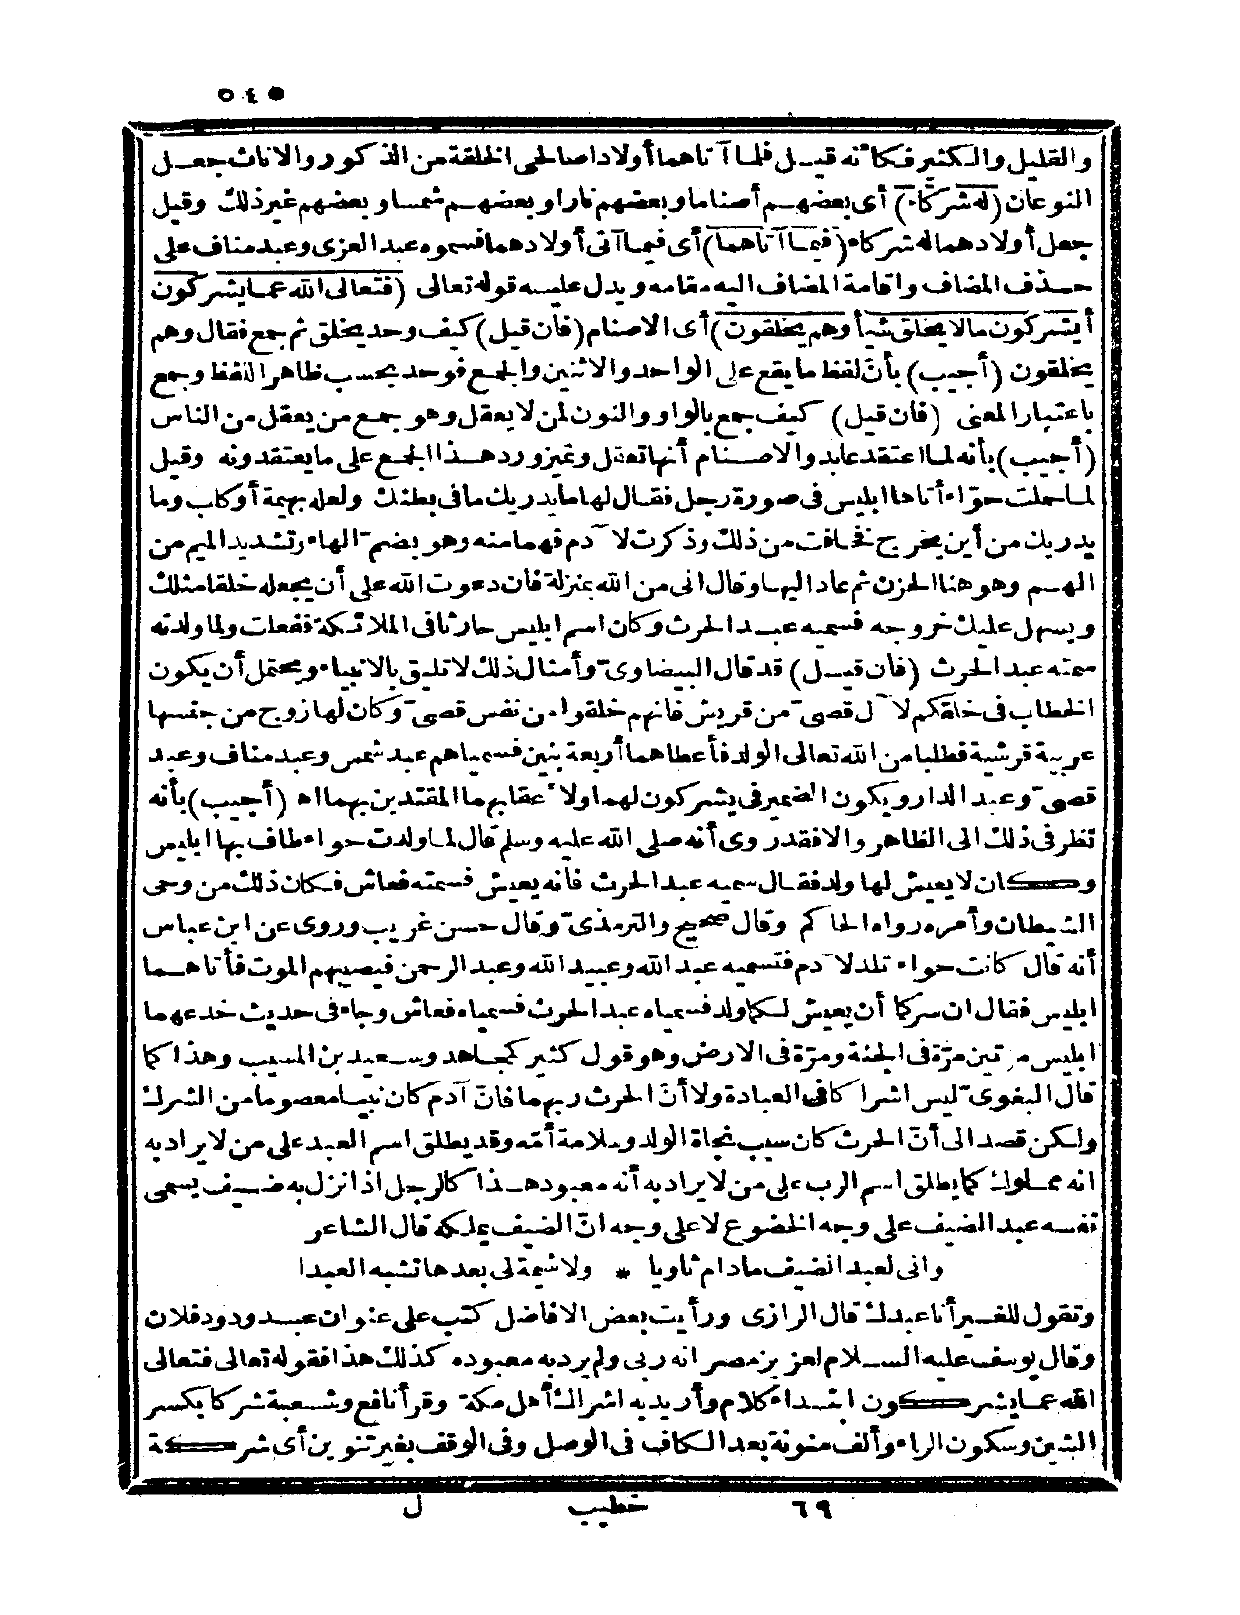 ٥٤٥
والقليل والكثير فكأنه قيل فلما آتاهما أولادا صالحي الخلقة من الذكور والاناث جعل
النوعان (له شركاء) أى بعضهم أصناما وبعضهم نارا وبعضهم شمسا وبعضهم غير ذلك وقيل
جعل أولادهما له شركاء (فيما آتاهما) أى فيما آتى أولادهما فسموه عبد العزى وعبد مناف على
حذف المضاف واقامة المضاف اليه مقامه ويدل عليه قوله تعالى (فتعالى الله عما يشركون
أيشركون مالا يخلق شيأ وهم يخلقون) أى الاصنام (فان قيل) كيف وحد يخلق ثم جمع فقال وهم
يخلقون (أجيب) بأن لفظ ما يقع على الواحد والاثنين والجمع فوحد بحسب ظاهر اللفظ وجمع
باعتبار المعنى (فان قيل) كيف جمع بالواو والنون لمن لا يعقل وهو جمع من يعقل من الناس
(أجيب) بأنه لما اعتقد عابدو الاصنام أنها تعقل وتميز ورد هذا الجمع على ما يعتقدونه وقيل
لما حملت حوّاء أتاها ابليس فى صورة رجل فقال لها ما يدريك ما فى بطنك ولعله بهيمة أو كلب وما
يدريك من أين يخرج فخافت من ذلك وذكرت لآدم فهما منه وهو بضم الهاء وتشديد الميم من
الهم وهو هنا الحزن ثم عاد اليها وقال انى من الله بمنزلة فان دعوت الله على أن يجعله خلقا مثلك
ويسهل عليك خروجه فسميه عبد الحرث وكان اسم ابليس حارثا فى الملائكة ففعلت ولما ولدته
سمته عبد الحرث (فان قيل) قد قال البيضاوى وأمثال ذلك لا تليق بالانبياء ويحتمل أن يكون
الخطاب فى خلقكم لآل قصى من قريش فانهم خلقوا من نفس قصى وكان لها زوج من جنسها
عربية قرشية فطلبا من الله تعالى الولد فأعطاهما أربعة بنين فسمياهم عبد شمس وعبد مناف وعبد
قصى وعبد الدار ويكون الضمير فى يشركون لهما ولأعقابهما المقتدين بهما اه (أجيب) بأنه
نظر فى ذلك الى الظاهر والا فقد روى أنه صلى الله عليه وسلم قال لما ولدت حواء طاف بها ابليس
وكان لا يعيش لها ولد فقال سميه عبد الحرث فانه يعيش فسمته فعاش فكان ذلك من وحى
الشيطان وأمره رواه الحاكم وقال صحيح والترمذى وقال حسن غريب وروى عن ابن عباس
أنه قال كانت حواء تلد لآدم فتسميه عبد الله وعبيد الله وعبد الرحمن فيصيبهم الموت فأتاهما
ابليس فقال ان سركما أن يعيش لكما ولد فسمياه عبد الحرث فسمياه فعاش وجاء فى حديث خدعهما
ابليس مرتين مرّة فى الجنة ومرّة فى الارض وهو قول كثير كمجاهد وسعيد بن المسيب وهذا كما
قال البغوى ليس اشراكا فى العبادة ولا أنّ الحرث ربهما فانّ آدم كان نبيا معصوما من الشرك
ولكن قصد الى أنّ الحرث كان سبب نجاة الولد وسلامة أمّه وقد يطلق اسم العبد على من لا يراد به
انه مملوك كما يطلق اسم الرب على من لا يراد به أنه معبود هذا كالرجل اذا نزل به ضيف يسمى
نفسه عبد الضيف على وجه الخضوع لا على وجه انّ الضيف يملكه قال الشاعر
وانى لعبد الضيف مادام ثاويا * ولا شيمة لى بعدها تشبه العبدا
وتقول للغير أنا عبدك قال الرازى ورأيت بعض الافاضل كتب على عنوان عبد ودود فلان
وقال يوسف عليه السلام لعزيز مصر انه ربى ولم يرد به معبوده كذلك هذا فقوله تعالى فتعالى
الله عما يشركون ابتداء كلام وأريد به اشراك أهل مكة وقرأ نافع وشعبة شركا بكسر
الشين وسكون الراء وألف منونة بعد الكاف فى الوصل وفى الوقف بغير تنوين أى شركة
٦٩ خطيب ل